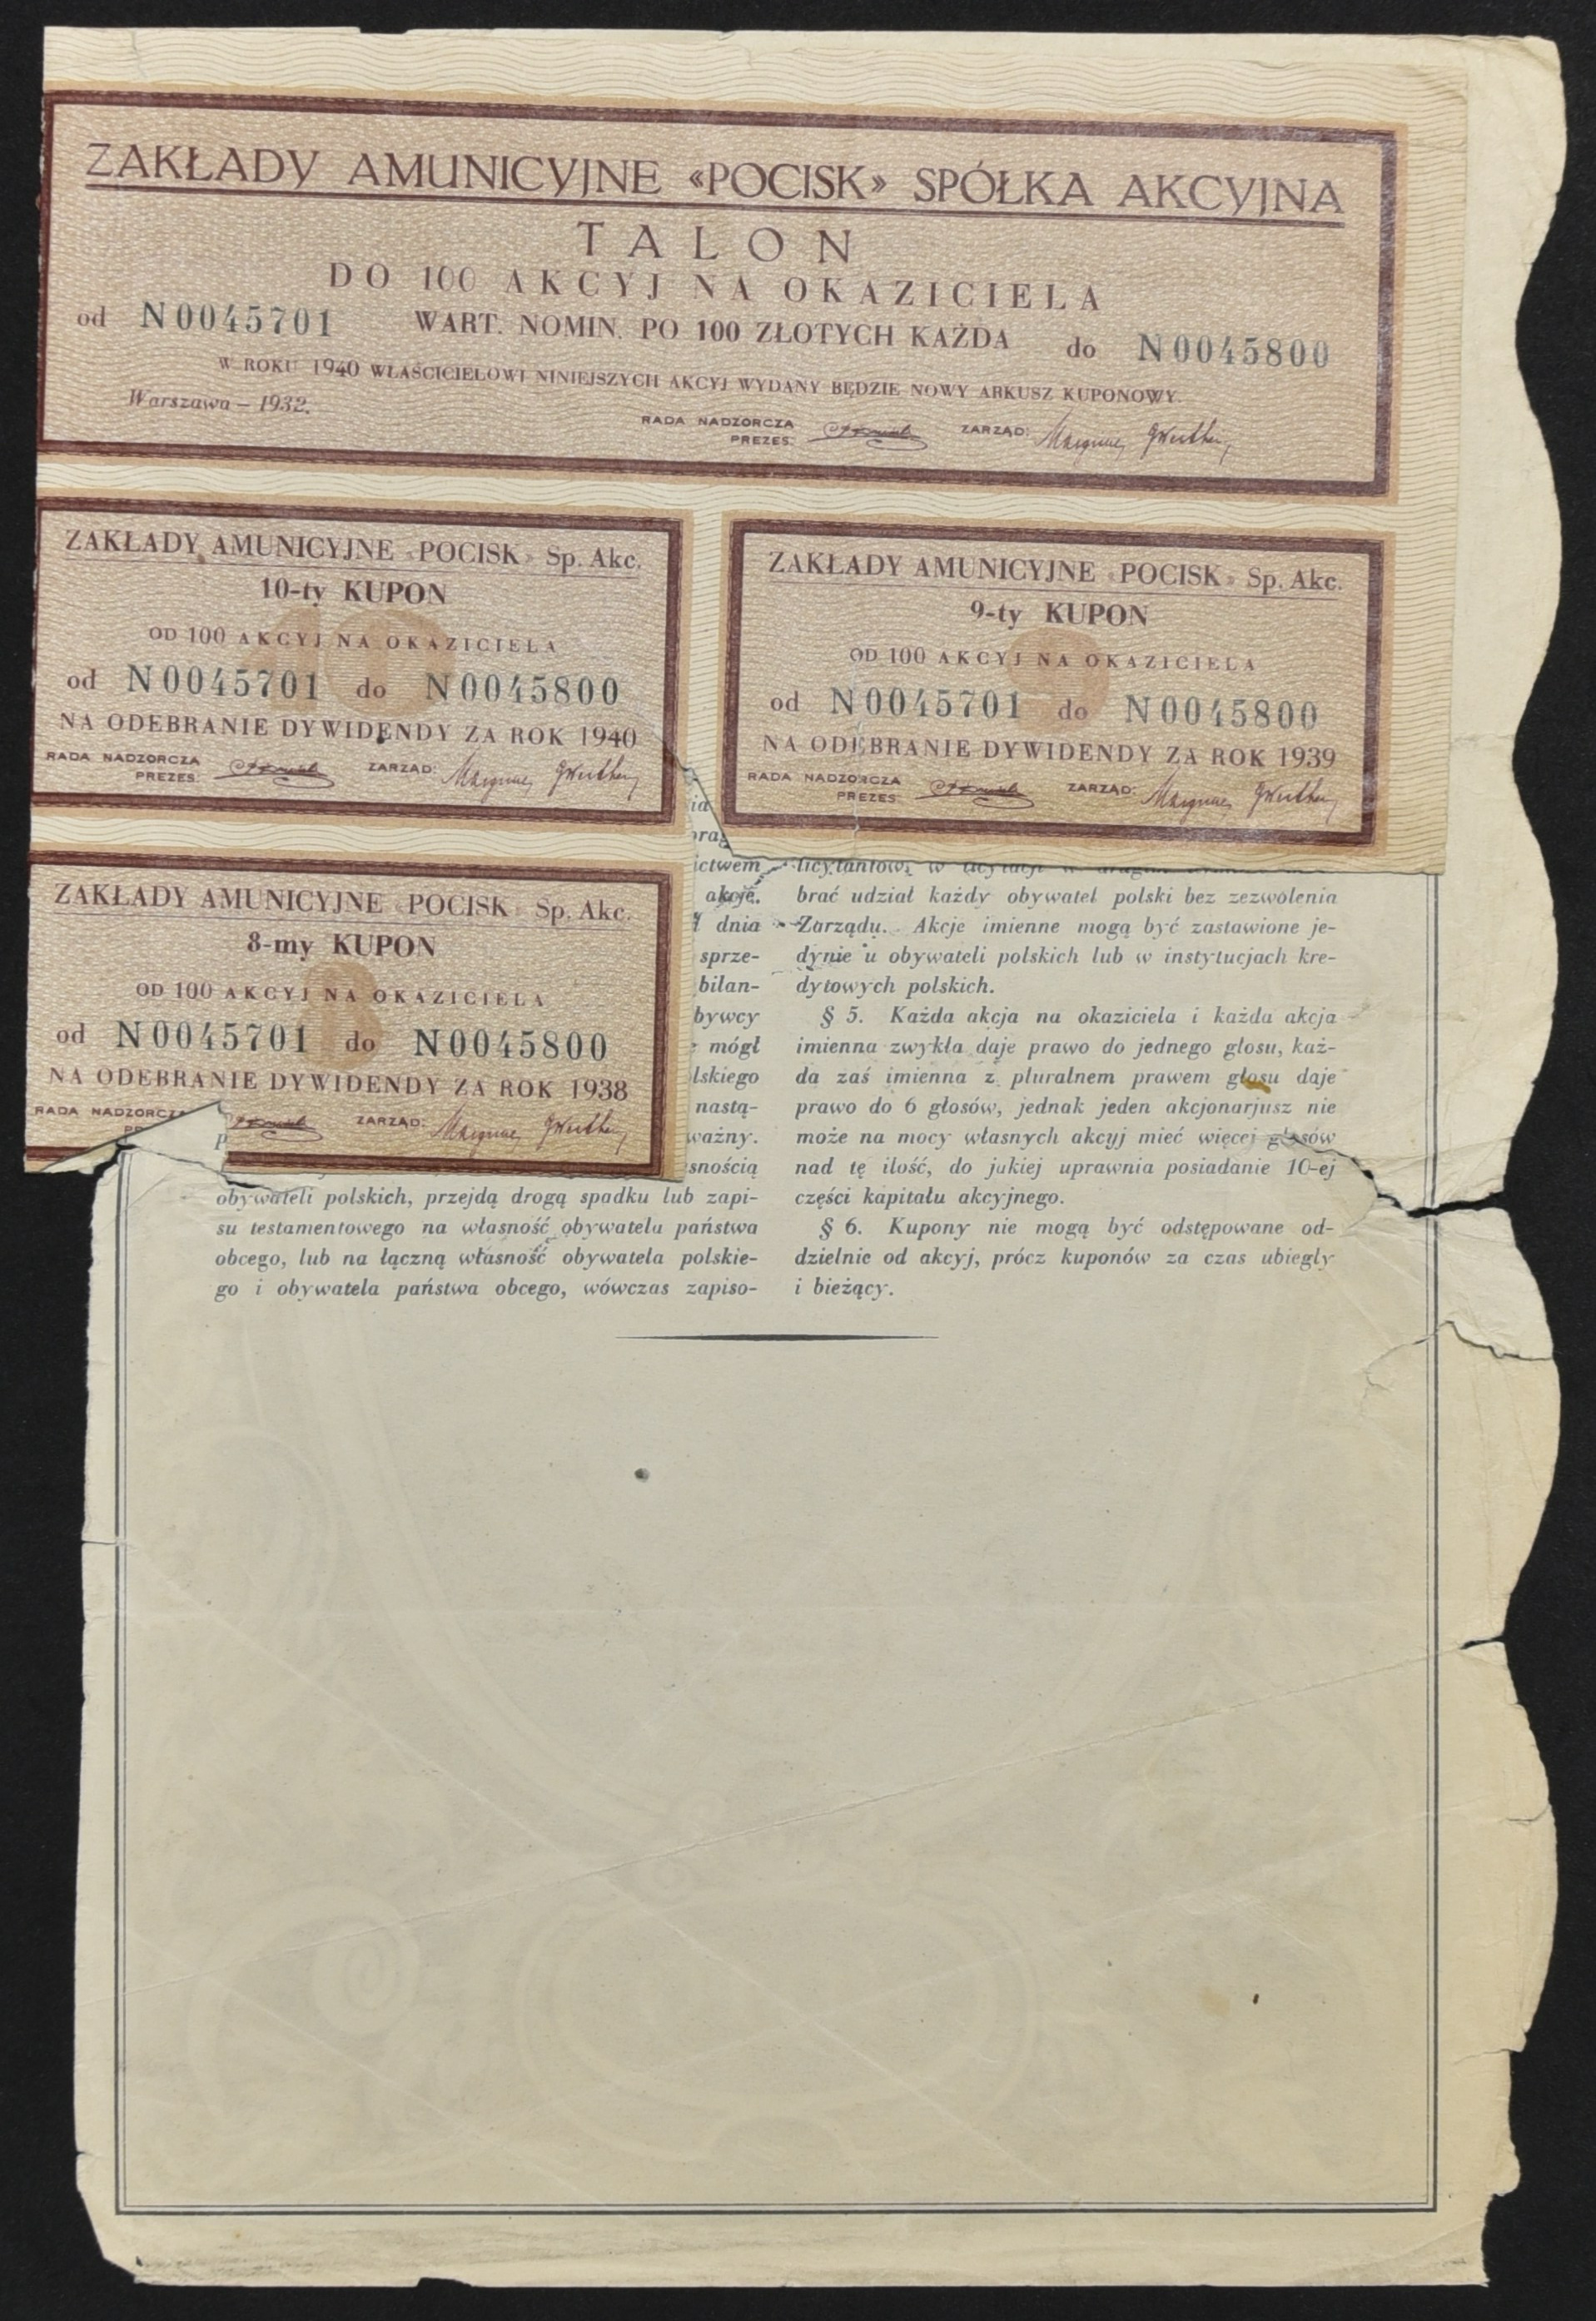 ZAKŁADY AMUNICYJNE «POCISK» SPÓŁKA AKCYJNA
TALON
DO 100 AKCYJ NA OKAZICIELA
od N0045701 WART. NOMIN. PO 100 ZŁOTYCH KAŻDA do N0045800
W ROKU 1940 WŁAŚCICIELOWI NINIEJSZYCH AKCYJ WYDANY BĘDZIE NOWY ARKUSZ KUPONOWY.
Warszawa – 1932.
RADA NADZORCZA
PREZES:
ZARZĄD:
ZAKŁADY AMUNICYJNE «POCISK» Sp. Akc.
10-ty KUPON
OD 100 AKCYJ NA OKAZICIELA
od N0045701 do N0045800
NA ODEBRANIE DYWIDENDY ZA ROK 1940
RADA NADZORCZA
PREZES:
ZARZĄD:
ZAKŁADY AMUNICYJNE «POCISK» Sp. Akc.
9-ty KUPON
OD 100 AKCYJ NA OKAZICIELA
od N0045701 do N0045800
NA ODEBRANIE DYWIDENDY ZA ROK 1939
RADA NADZORCZA
PREZES
ZARZĄD:
ZAKŁADY AMUNICYJNE «POCISK» Sp. Akc.
8-my KUPON
OD 100 AKCYJ NA OKAZICIELA
od N0045701 do N0045800
NA ODEBRANIE DYWIDENDY ZA ROK 1938
RADA NADZORCZA
ZARZĄD:
ictwem
akcje.
dnia
sprze-
bilan-
bywcy
mógł
lskiego
nastą-
ważny.
snością
obywateli polskich, przejdą drogą spadku lub zapi-
su testamentowego na własność obywatela państwa
obcego, lub na łączną własność obywatela polskie-
go i obywatela państwa obcego, wówczas zapiso-
licytantów, w licytacji w
brać udział każdy obywatel polski bez zezwolenia
Zarządu. Akcje imienne mogą być zastawione je-
dynie u obywateli polskich lub w instytucjach kre-
dytowych polskich.
§ 5. Każda akcja na okaziciela i każda akcja
imienna zwykła daje prawo do jednego głosu, każ-
da zaś imienna z pluralnem prawem głosu daje
prawo do 6 głosów, jednak jeden akcjonarjusz nie
może na mocy własnych akcyj mieć więcej głosów
nad tę ilość, do jakiej uprawnia posiadanie 10-ej
części kapitału akcyjnego.
§ 6. Kupony nie mogą być odstępowane od-
dzielnie od akcyj, prócz kuponów za czas ubiegły
i bieżący.